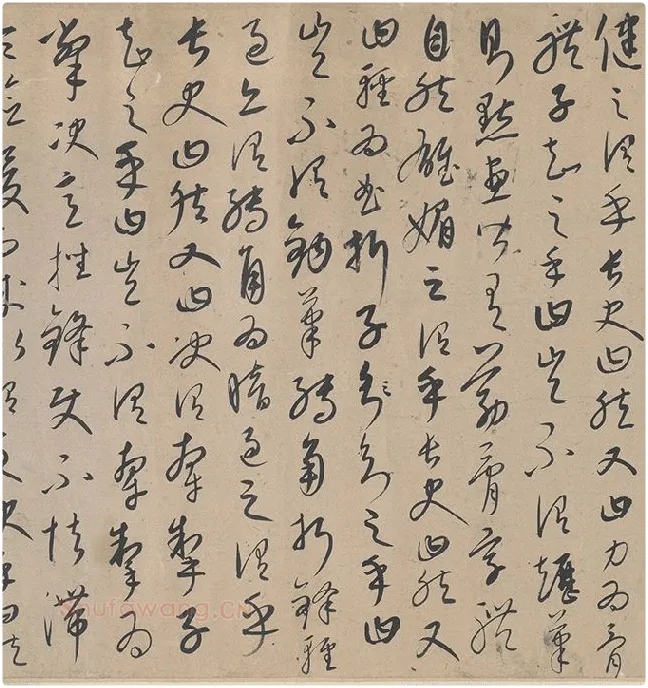 健之謂乎長史曰然又曰力為骨
體子知之乎曰豈不謂趯筆
則點畫皆有筋骨字體
自然雄媚之謂乎長史曰然又
曰輕為曲折子知知之乎曰
豈不謂鉤筆轉角折鋒輕
過亦謂轉角為暗過之謂乎
長史曰然又曰決謂牽掣子
知之乎曰豈不謂牽掣為
撆決意挫鋒使不怯滯
Shufawang.CN